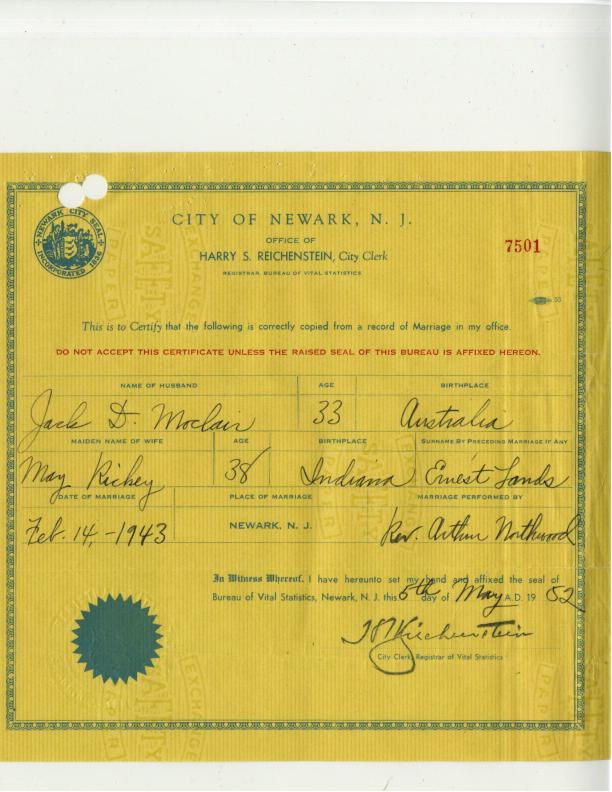 NEWARK CITY SEAL
INCORPORATED 1836
CITY OF NEWARK, N. J.
OFFICE OF
HARRY S. REICHENSTEIN, City Clerk
REGISTRAR, BUREAU OF VITAL STATISTICS
7501
55
This is to Certify that the following is correctly copied from a record of Marriage in my office.
DO NOT ACCEPT THIS CERTIFICATE UNLESS THE RAISED SEAL OF THIS BUREAU IS AFFIXED HEREON.
NAME OF HUSBAND AGE BIRTHPLACE
Jack D. Moclair 33 Australia
MAIDEN NAME OF WIFE AGE BIRTHPLACE SURNAME BY PRECEDING MARRIAGE IF ANY
May Richey 38 Indiana Ernest Lands
DATE OF MARRIAGE PLACE OF MARRIAGE MARRIAGE PERFORMED BY
Feb. 14, - 1943 NEWARK, N. J. Rev. Arthur Northwood
In Witness Whereof, I have hereunto set my hand and affixed the seal of
Bureau of Vital Statistics, Newark, N. J. this 5th day of May A.D. 19 52
HSReichenstein
City Clerk, Registrar of Vital Statistics
EXCHANGE
SAFETY
PAPER